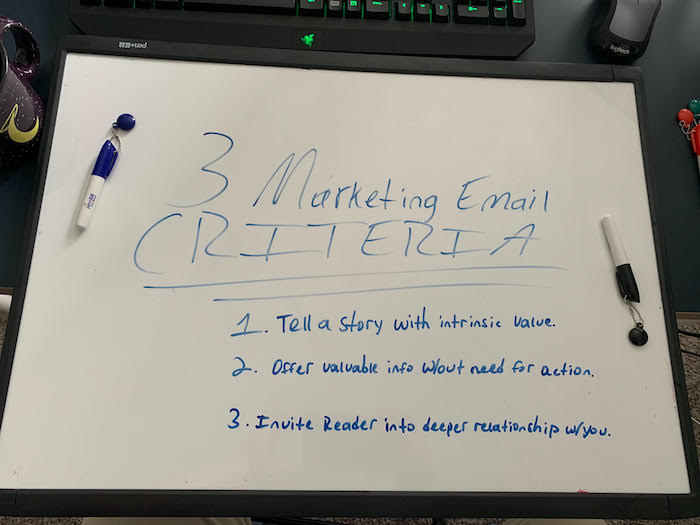 3 Marketing Email
CRITERIA
1. Tell a story with intrinsic value.
2. Offer valuable info w/out need for action.
3. Invite Reader into deeper relationship w/you.
logitech